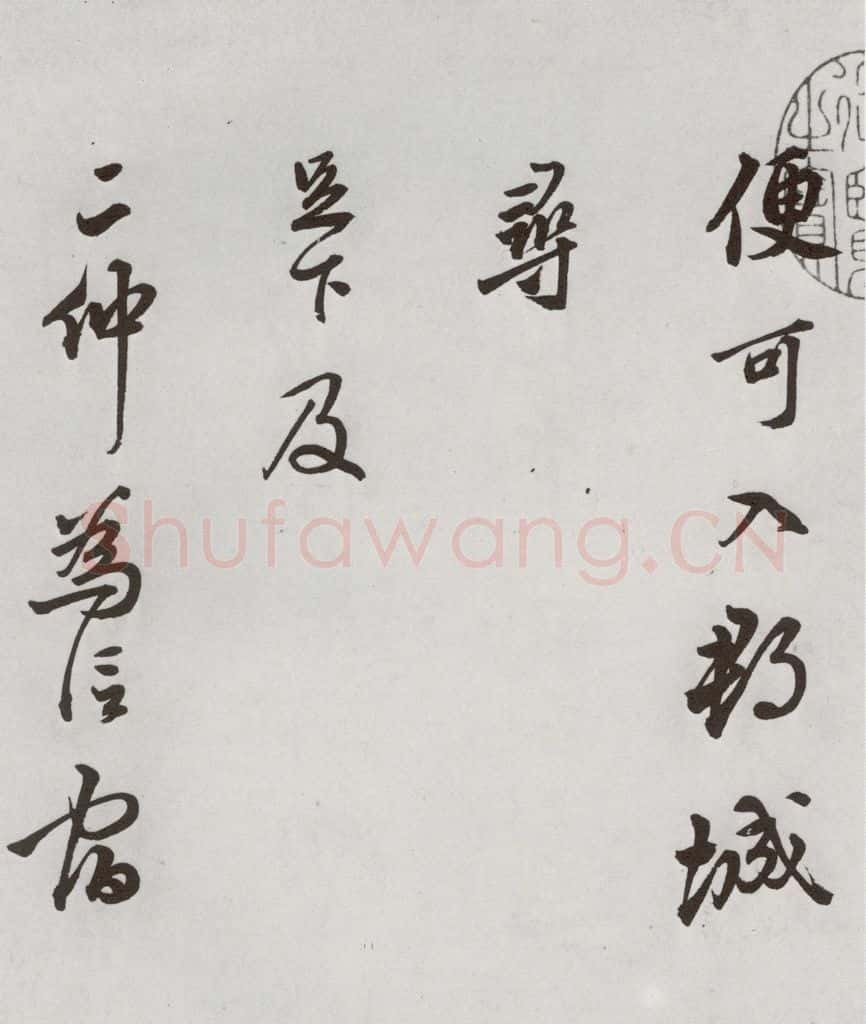 便可入郡城
尋
足下及
二仲為信宿
Shufawang.CN